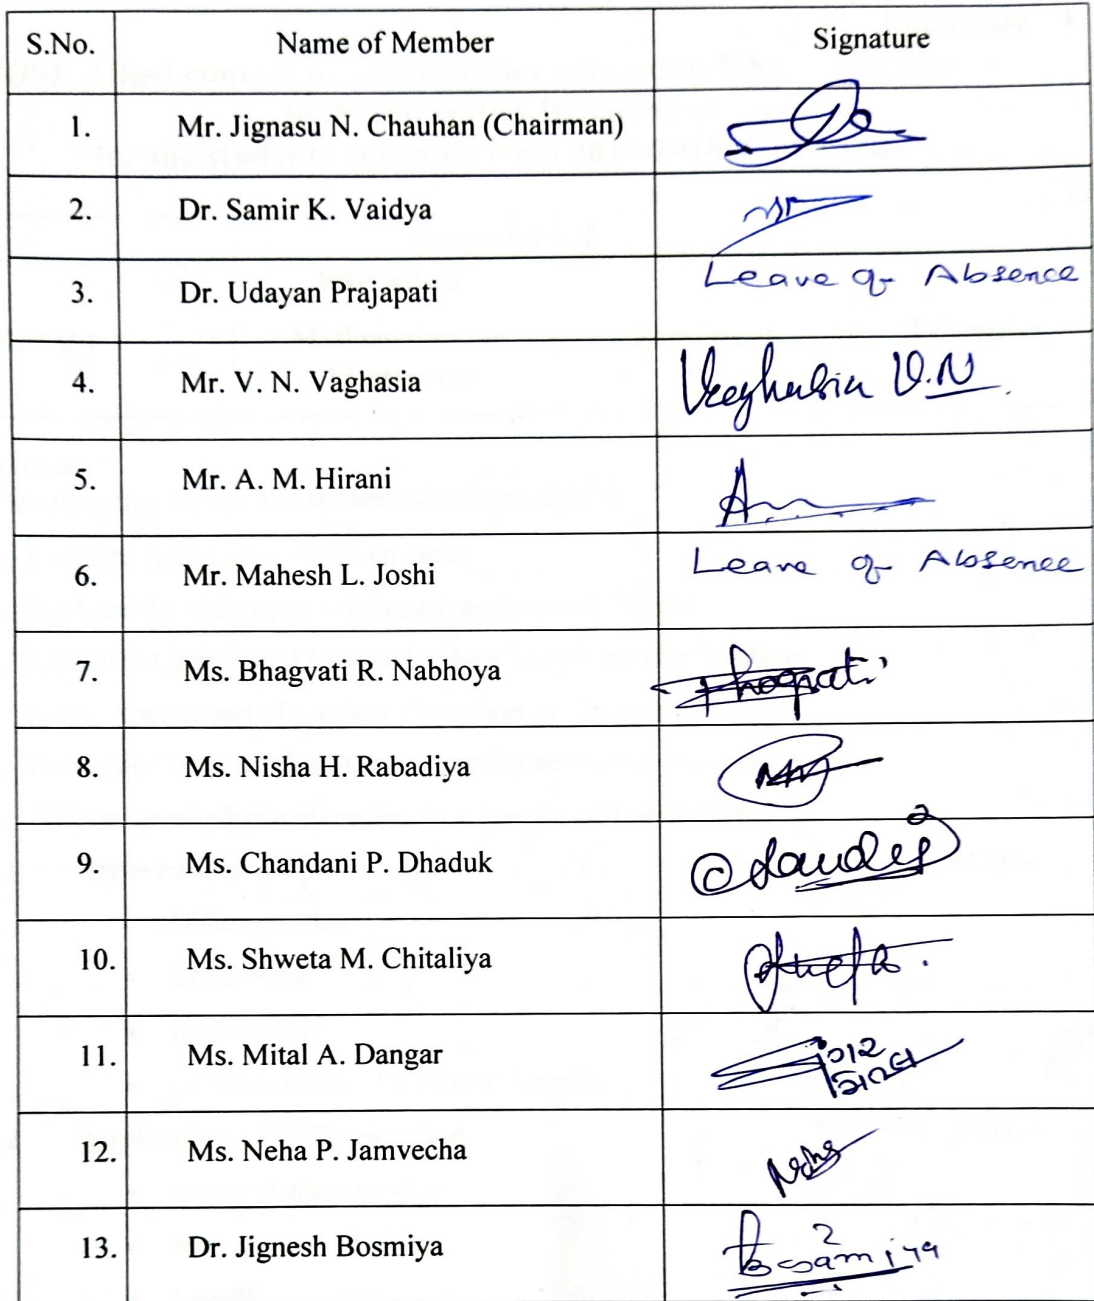 S.No. Name of Member Signature
1. Mr. Jignasu N. Chauhan (Chairman)
2. Dr. Samir K. Vaidya
3. Dr. Udayan Prajapati Leave of Absence
4. Mr. V. N. Vaghasia Vaghasia V.N.
5. Mr. A. M. Hirani
6. Mr. Mahesh L. Joshi Leave of Absence
7. Ms. Bhagvati R. Nabhoya
8. Ms. Nisha H. Rabadiya
9. Ms. Chandani P. Dhaduk
10. Ms. Shweta M. Chitaliya
11. Ms. Mital A. Dangar
12. Ms. Neha P. Jamvecha
13. Dr. Jignesh Bosmiya